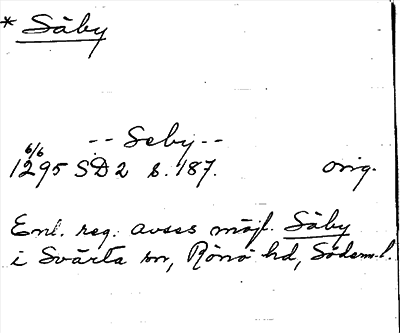 * Säby
-- Seby --
6/6
1295 SD 2 s. 187. orig.
Enl. reg. avses möjl. Säby
i Svärta sn, Rönö hd, Söderml.